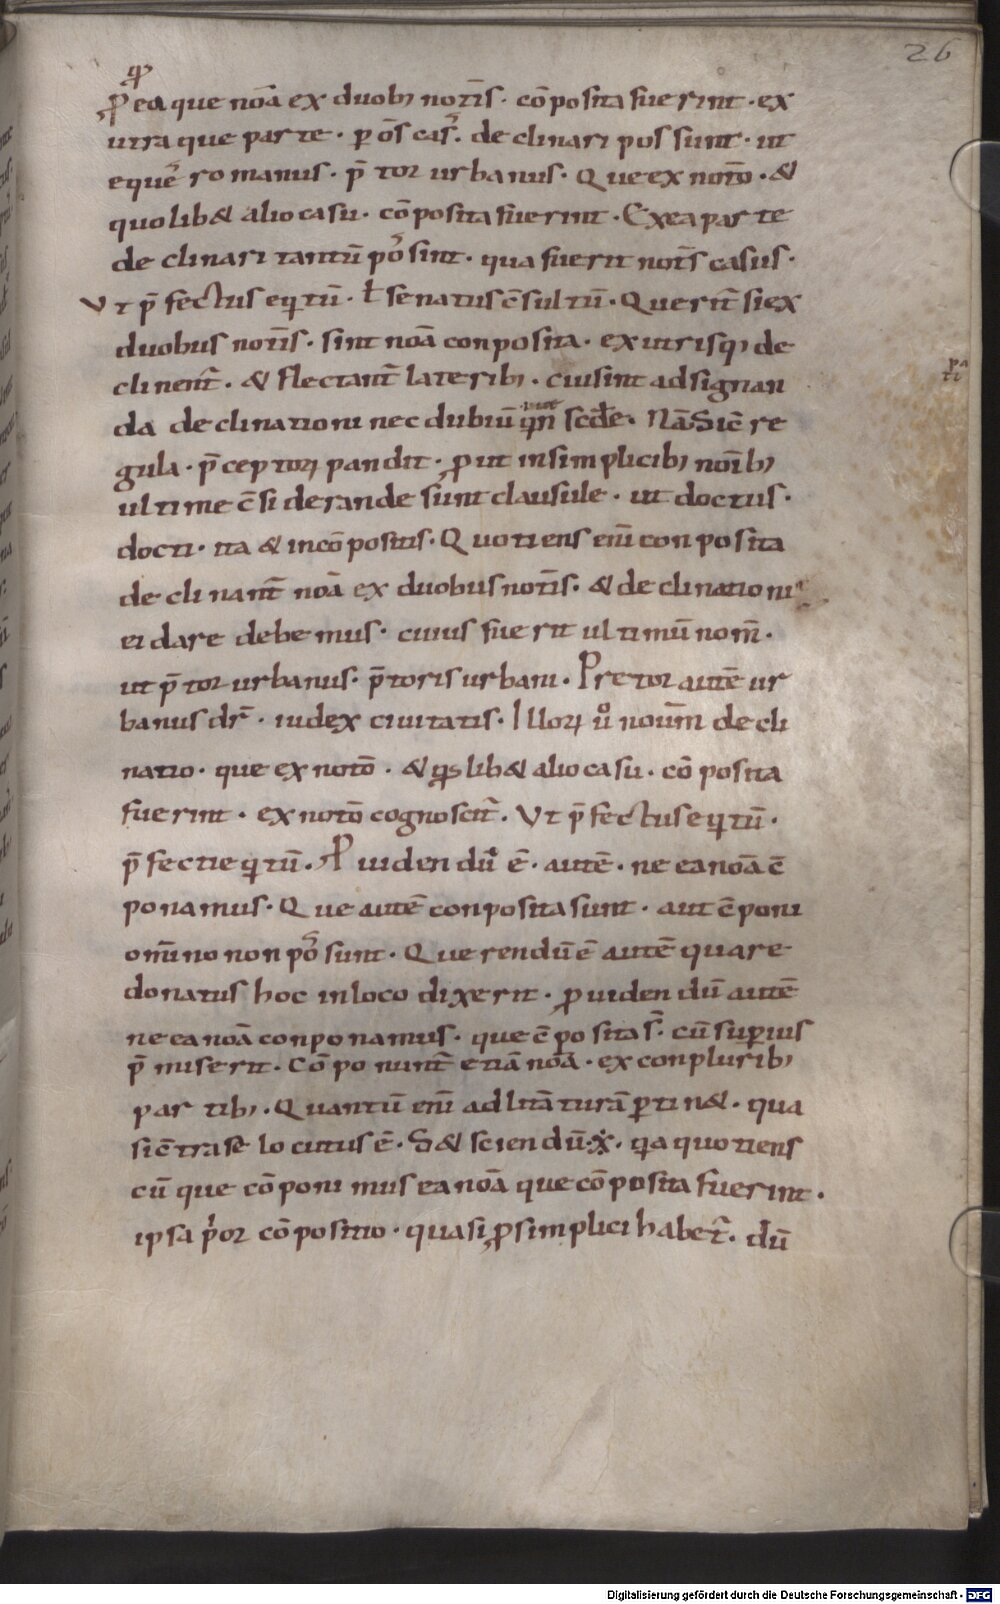 26
qđ
ꝓ ea que nōa ex duobꝫ notīs · cōposita fuerint · ex
utraque parte · ꝑ os̄ cas̄ · declinari possunt · ut
eques̄ romanus · p̄tor urbanus · Que ex notō · &
quolib& alio casu · cōposita fuerint · Ex ea parte
declinari tantū pos̄sint · qua fuerit notīs casus ·
Vt p̄fectus eqitū · ł senatus c̄sultū · Querit̄ si ex
duobus notīs · sint nōa conposita · ex utrisqꝫ de
clinent̄ · & flectant̄ lateribꝫ · cui sint adsignan
da declinationi nec dubiū qn̄ scd̄e · Nā Sic̄ re
gula · p̄ceptoꝝ pandit · ꝓut in simplicibꝫ noībꝫ
ultime c̄siderande sunt clausule · ut doctus ·
docti · ita & in cōpositis · Quotiens enī conposita
declinant̄ nōa ex duobus notīs · & declinationi
ei dare debemus · cuius fuerit ultimū nom̄ ·
ut p̄tor urbanus · p̄toris urbani · Pretor autē ur
banus dr̄ · iudex ciuitatis · Illoꝝ ů nouım̄ decli
natio · que ex notō · & qs lib& alio casu · cōposita
fuerint · ex notō cognoscit̄ · Vt p̄fectus eqitū ·
p̄fecti eqitū · Puidendū ē · autē · ne ea nōa c̄
ponamus · Que autē conposita sunt · aut c̄poni
omīno non pos̄sunt · Querendū ē autē quare
donatus hoc in loco dixerit · ꝓuidendū autē
ne ea nōa conponamus · que c̄posita s̄ · cū suꝑius
p̄miserit · Cōponunt̄ etiā nōa · ex conpluribꝫ
partibꝫ · Quantū enī ad litāturā ꝑtin& · qua
si c̄tra se locutus ē · S& sciendū · qa quotiens
cūque cōponimus ea nōa que cōposita fuerint ·
ipsa p̍or cōpositio · quasi ꝓ simplici habet̄ · dū
Digitalisierung gefördert durch die Deutsche Forschungsgemeinschaft · DFG